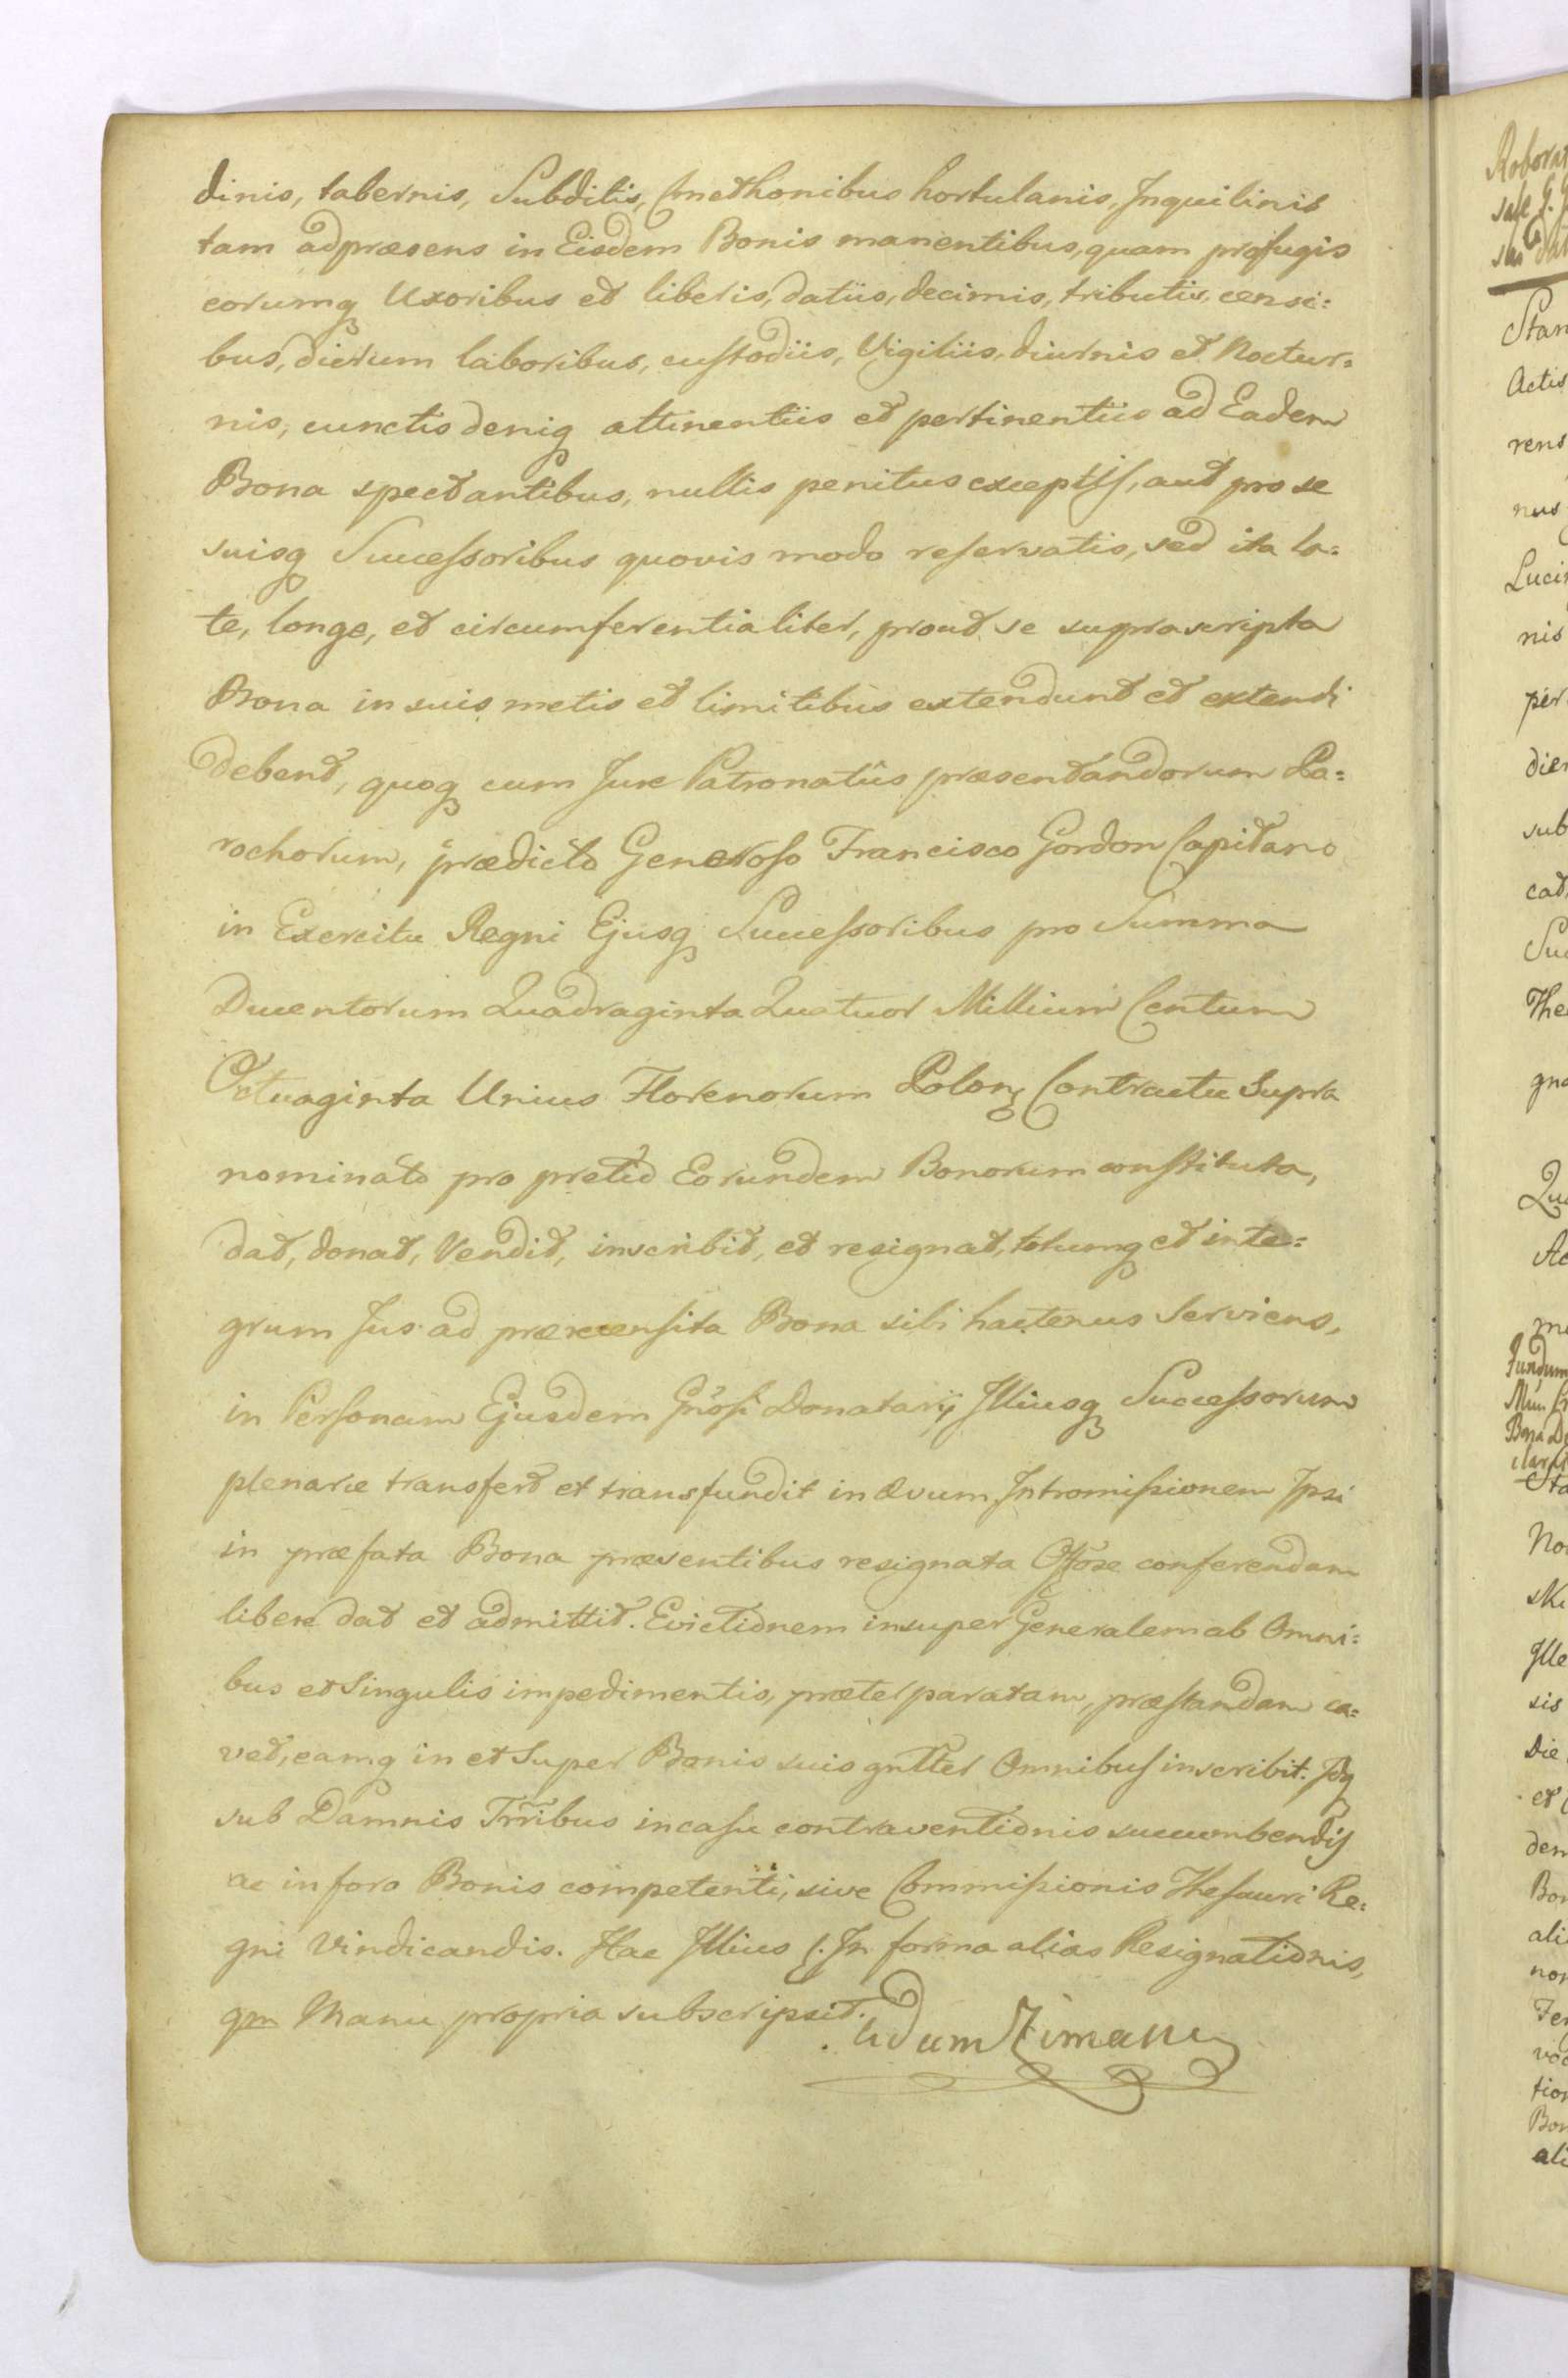 dinis, tabernis, Subditis, Cmethonibus hortulanis, Inquilinis
tam adpræsens in Eisdem Bonis manentibus, quam profugis
eorumq Uxoribus et liberis, datiis, decimis, tributis, censi:
bus, dierum laboribus, custodiis, Vigiliis, diurnis et Noctur:
nis, cunctis deniq attinentiis et pertinentiis ad Eadem
Bona spectantibus, nullis penitus exceptis, aut pro se
suisq Successoribus quovis modo reservatis, sed ita la:
te, longe, et circumferentialiter, prout se suprascripta
Bona in suis metis et limitibus extendunt et extendi
debent, quoq cum Jure Patronatûs præsentandorum Pa:
rochorum, prædicto Generoso Francisco Gordon Capitano
in Exercitu Regni Ejusq Successoribus pro Summa
Ducentorum Quadraginta Quatuor Millium Centum
Octuaginta Unius Florenorum Polon Contractu Supra
nominato pro pretio Eorundem Bonorum constituta,
dat, donat, Vendit, inscribit, et resignat, totumq et inte:
grum Jus ad præcensita Bona sibi hactenus Serviens,
in Personam Ejusdem Gnosi Donatarij Illiusq Successorum
plenarie transfert et transfundit in ævum, Intromissionem Ipsi
in præfata Bona præsentibus resignata Offose conferendam
libere dat et admittit. Evictionem insuper Generalem ab Omni:
bus et Singulis impedimentis, præter paratam, præstandam ca:
vet, eamq in et Super Bonis suis gntter Omnibus inscribit. Idq
sub Damnis Trribus in casu contraventionis succumbendis
ac in foro Bonis competenti, sive Commissionis Thesauri Re:
gni Vindicandis. Hac Illius /. In forma alias Resignationis,
qm Manu propria subscripsit.
Adam Zimann
Roborat
Stan
Actis
rens
nus
Luci
nis
per
die
sub
cat
Suc
The
gna
Qu
Ac
me
Fundum
Bona
Sta
No
ski
Ille
sis
Die
et
dem
Bon
ali
non
Fer
voc
tion
Bon
ali